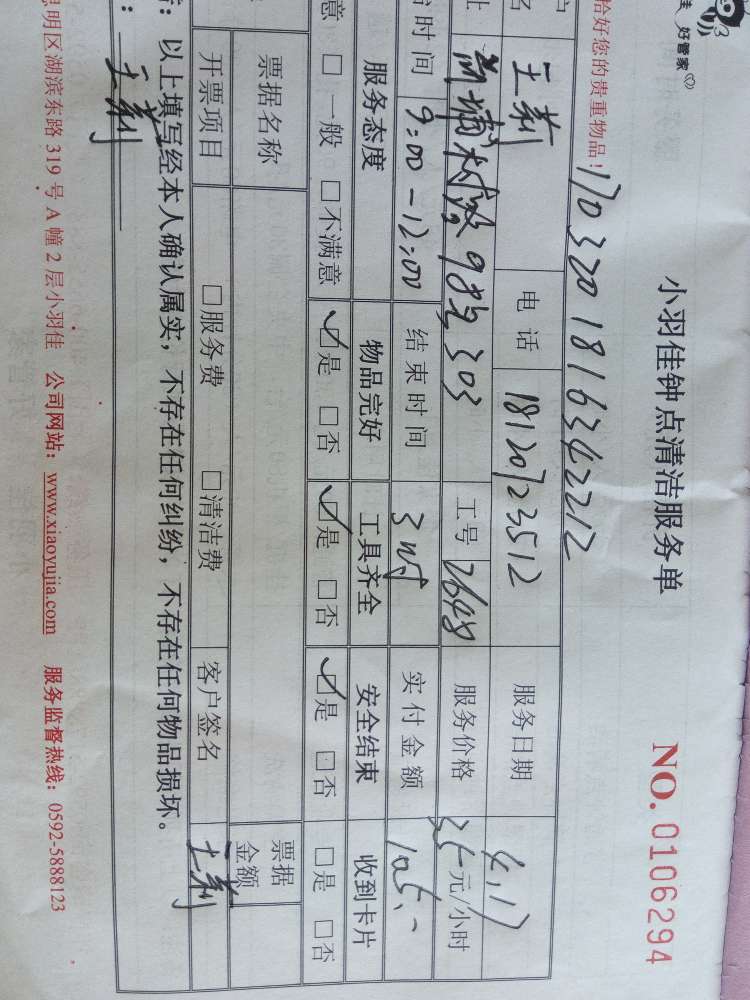 佳 好管家
小羽佳钟点清洁服务单 NO. 0106294
恰好您的贵重物品! 1703201816342212
王莉 电话 18120723512 服务日期 4.17
98号303 工号 2648 服务价格 35元/小时
时间 9:00-12:00 结束时间 3时 实付金额 105.-
服务态度 物品完好 工具齐全 安全结束 收到卡片
意 □一般 □不满意 ☑是 □否 ☑是 □否 ☑是 □否 □是 □否
票据名称 票据金额
开票项目 □服务费 □清洁费 客户签名 王莉
:以上填写经本人确认属实,不存在任何纠纷,不存在任何物品损坏。
:王莉
明区湖滨东路 319 号 A 幢 2 层小羽佳 公司网站:www.xiaoyujia.com 服务监督热线:0592-5888123